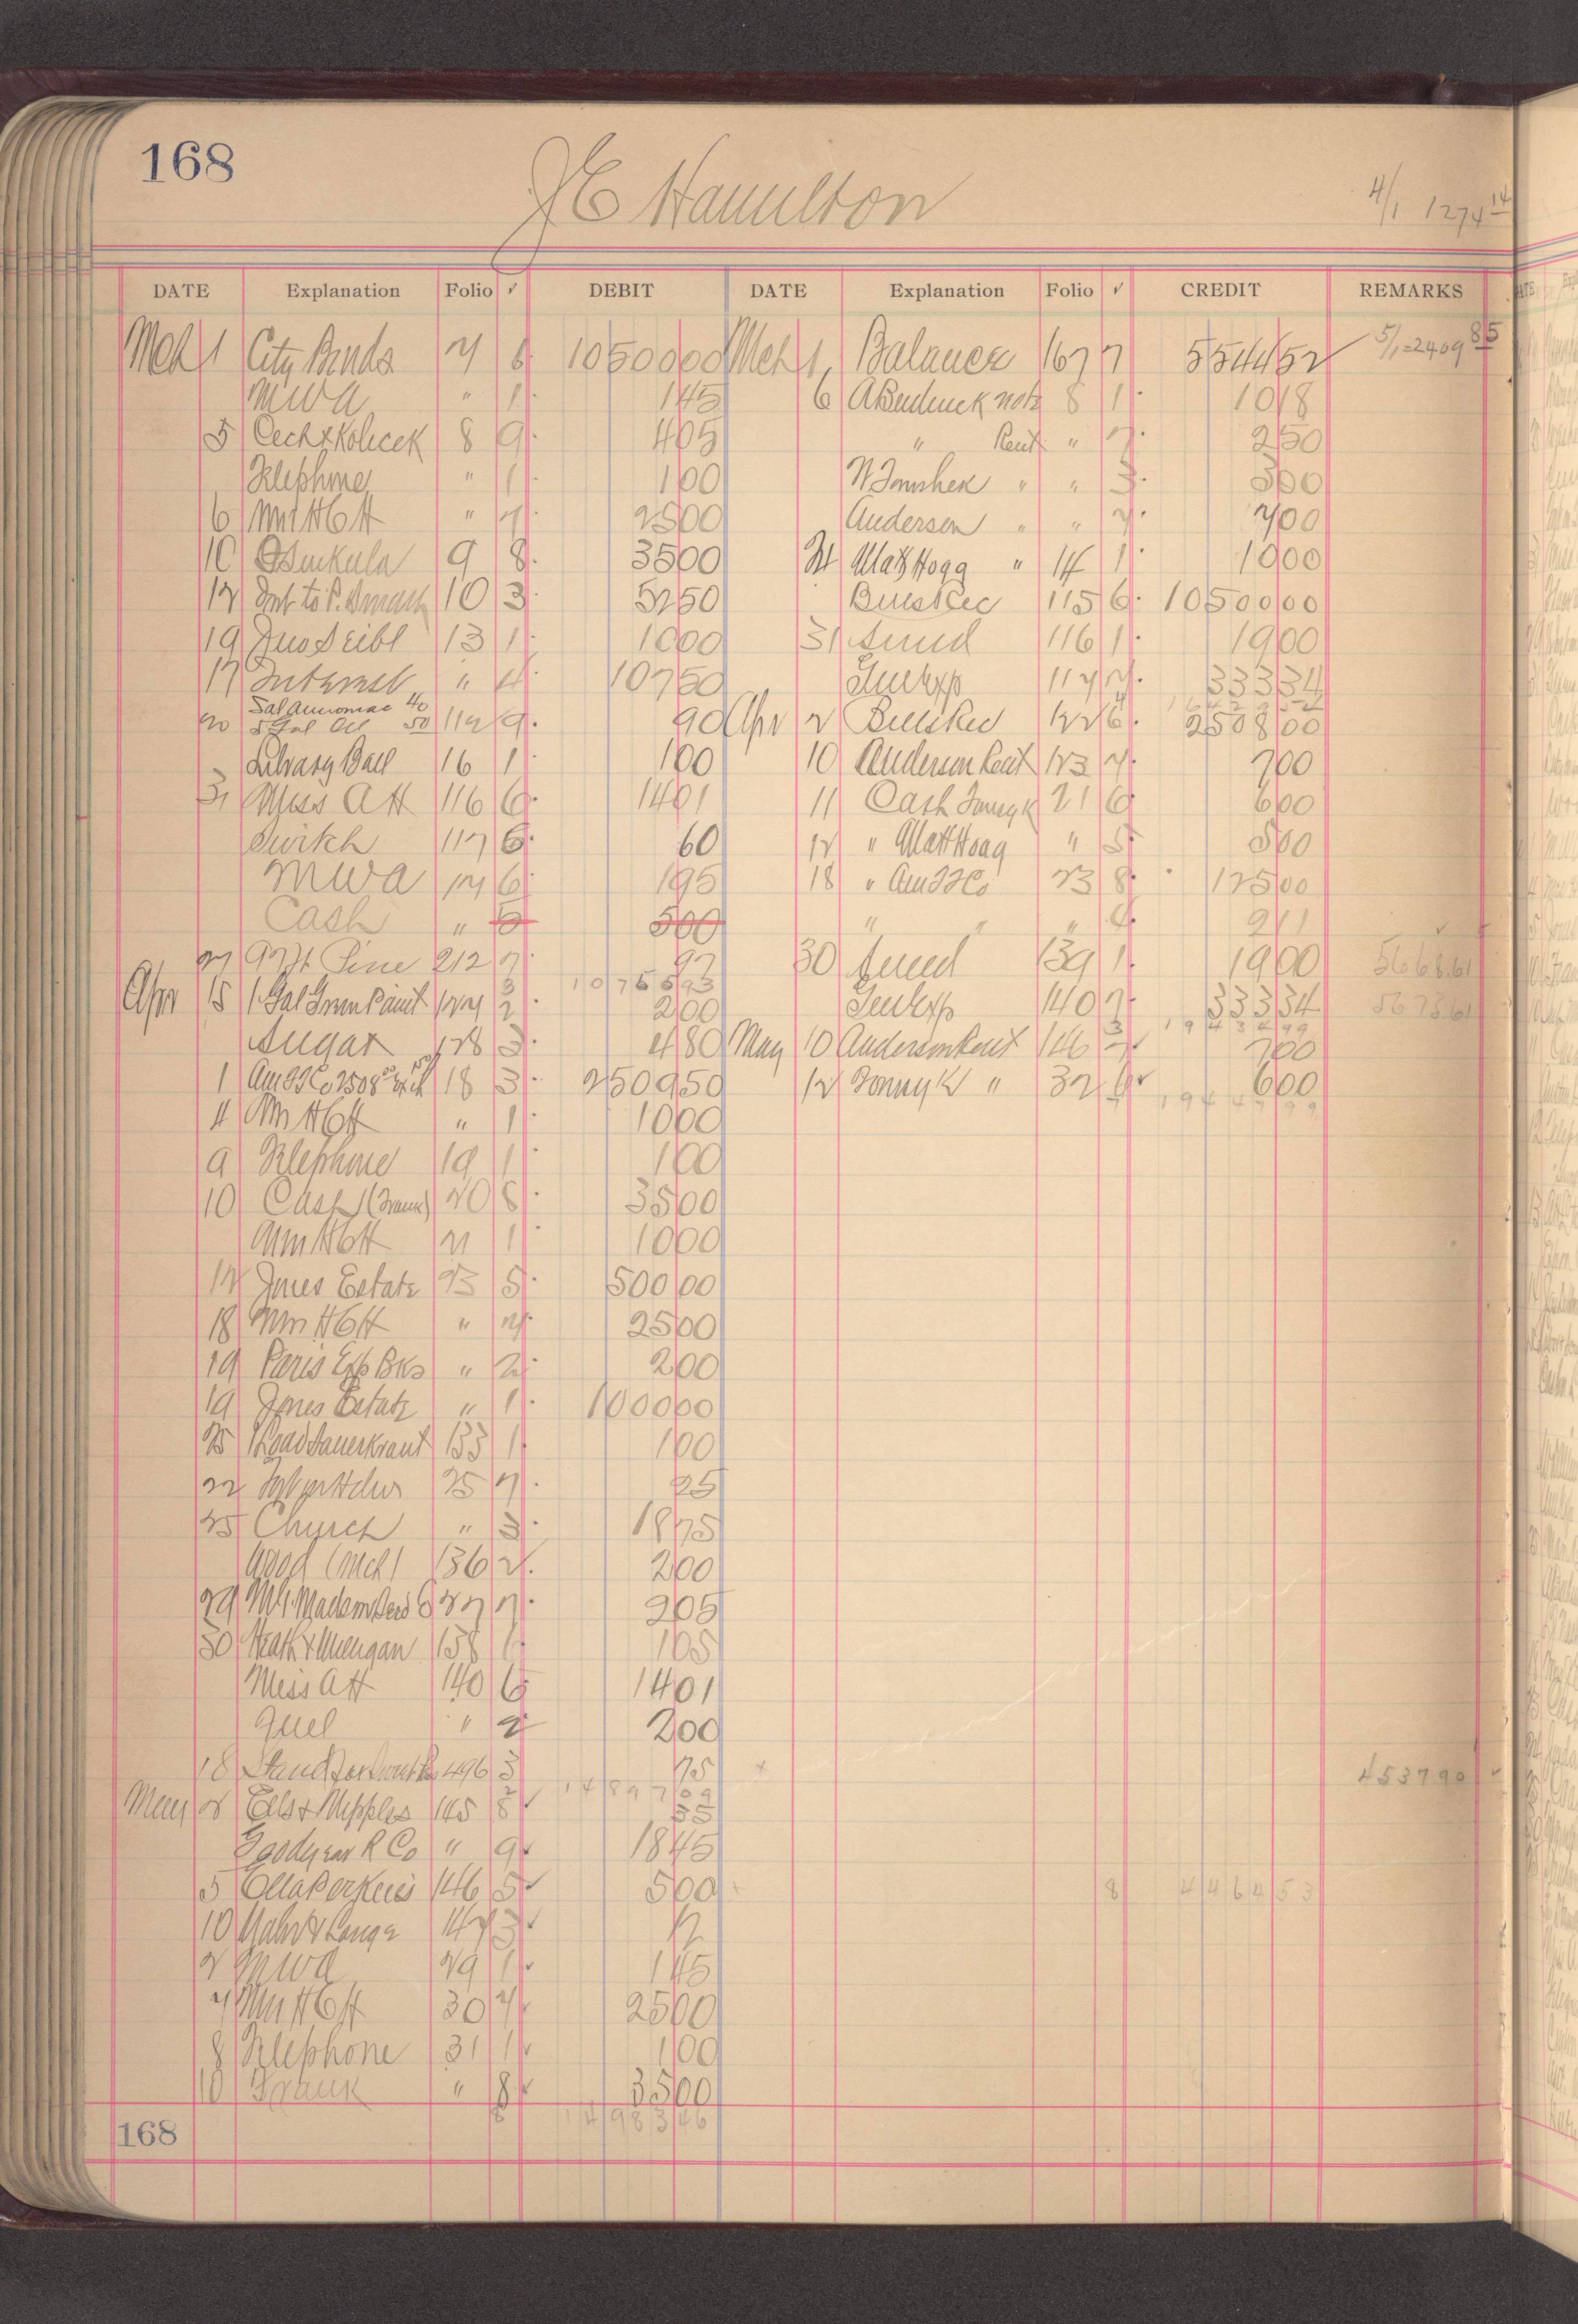 168
J E Hamilton
4/1 1274 14
DATE Explanation Folio √ DEBIT DATE Explanation Folio √ CREDIT REMARKS
Mch 1 City Bonds 7 6 10500 00 Mch 1 Balance 167 7 5544 52 5/1 = 2409 85
MWA " 1 1 45 6 note 8 1 10 18
5 Cech & Kolicek 8 9 4 05 " Rent " 7 2 50
Telephone " 1 1 00 " " 3 3 00
6 Wm H C H " 7 25 00 Anderson " " 7 7 00
10 9 8 35 00 Matt Hogg " 14 1 10 00
12 Int to P. 10 3 52 50 Bills Rec 115 6 10500 00
19 13 1 10 00 31 116 1 19 00
17 Interest " 4 107 50 Gen Exp 117 7 333 34
Sal Ammoniac 40
20 5 Gal Oil 50 112 9 90 Apr 2 Bills Rec 122 6 2508 00
Library Ball 16 1 1 00 10 Anderson Rent 123 7 7 00
31 Miss A H 116 6 14 01 11 Cash 21 6 6 00
Switch 117 6 60 12 " Matt Hoag " 5 5 00
MWA 17 6 1 95 18 " Am T Co 23 8 125 00
Cash " 5 5 00 " " " 4 2 11
27 97 ft Pine 212 7 97 30 139 1 19 00 5668.61
10765 93
Apr 15 1 Gal Green Paint 127 2 2 00 Gen Exp 140 7 333 34 5673.61
19434 99
Sugar 128 3 4 80 May 10 Anderson Rent 146 7 7 00
1 Am T Co 2508 00 Exch 1 50 18 3 2509 50 12 " 32 6 6 00
4 Wm H C H " 1 10 00
9 Telephone 19 1 1 00
10 Cash (Frank) 20 8 35 00
Wm H C H 21 1 10 00
12 Jones Estate 23 5 500 00
18 Wm H C H " 7 25 00
19 Paris Exp Bks " 2 2 00
19 Jones Estate " 1 1000 00
25 1 Load Sauerkraut 133 1 1 00
22 25 7 25
25 Church " 3 18 75
Wood (Mch) 136 2 2 00
29 27 7 2 05
30 Heath & Milligan 138 6 1 05
Miss A H 140 6 14 01
Fuel " 2 2 00
18 Stand for 496 3 75 4537 90
14897 09
May 2 Ells & Nipples 145 8 35
Goodyear R Co " 9 18 45
5 Olla Perkins 146 5 5 00 8 4464 53
10 & Lange 147 3 12
2 MWA 29 1 1 45
7 Wm H C H 30 7 25 00
8 Telephone 31 1 1 00
10 Frank " 8 35 00
8 14983 46
168